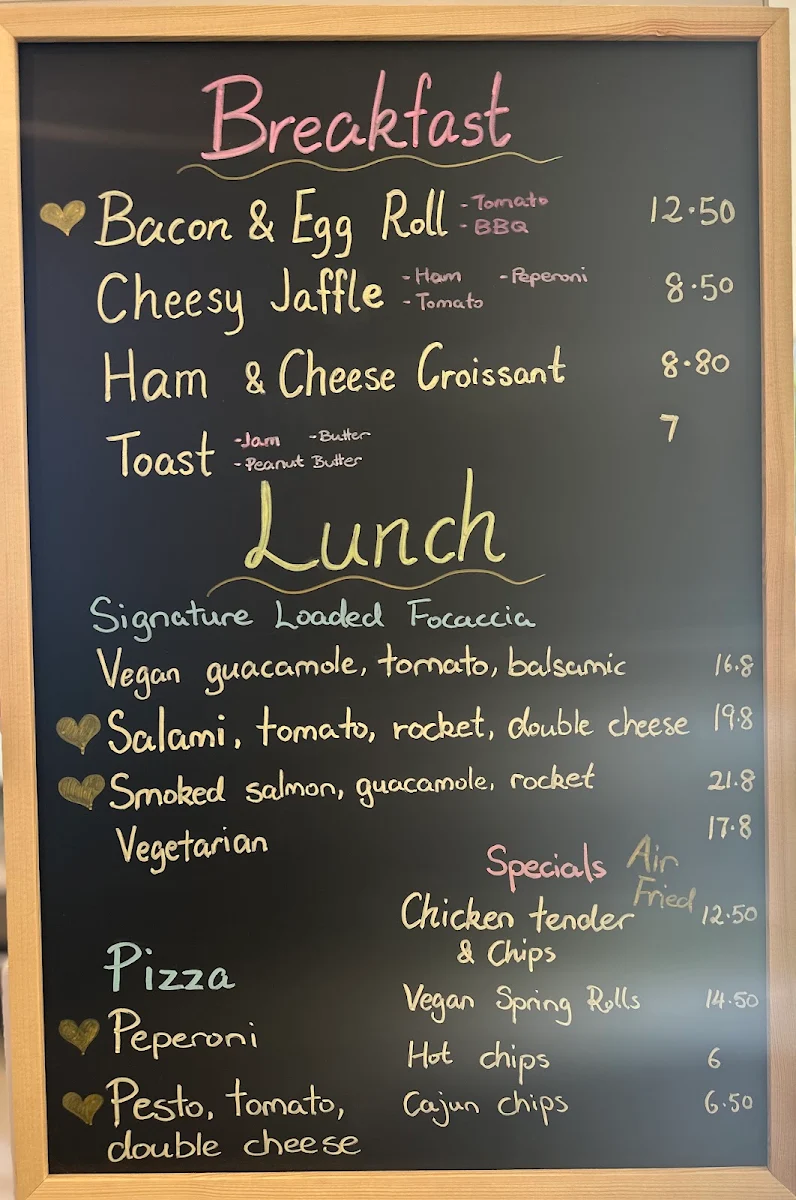 Breakfast
Bacon & Egg Roll - Tomato - BBQ 12.50
Cheesy Jaffle - Ham - Peperoni - Tomato 8.50
Ham & Cheese Croissant 8.80
Toast - Jam - Butter - Peanut Butter 7
Lunch
Signature Loaded Focaccia
Vegan guacamole, tomato, balsamic 16.8
Salami, tomato, rocket, double cheese 19.8
Smoked salmon, guacamole, rocket 21.8
Vegetarian 17.8
Specials Air Fried
Chicken tender & Chips 12.50
Vegan Spring Rolls 14.50
Hot chips 6
Cajun chips 6.50
Pizza
Peperoni
Pesto, tomato,
double cheese